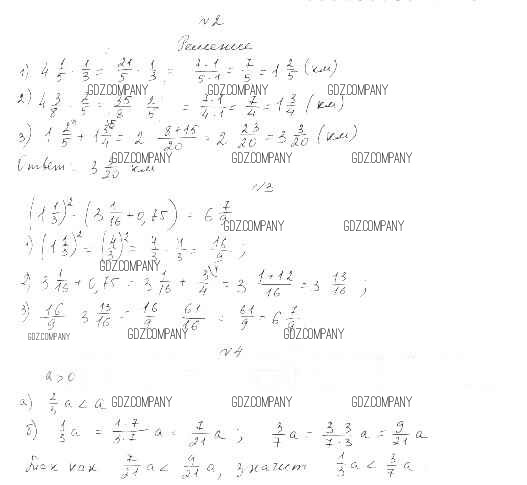 №2
Решение
1) 4 1/5 · 1/3 = 21/5 · 1/3 = 7·1/5·1 = 7/5 = 1 2/5 (км)
GDZ.COMPANY GDZ.COMPANY GDZ.COMPANY
2) 4 3/8 · 2/5 = 35/8 · 2/5 = 7·1/4·1 = 7/4 = 1 3/4 (км)
3) 1 2/5 + 1 3/4 = 2 8+15/20 = 2 23/20 = 3 3/20 (км)
GDZ.COMPANY GDZ.COMPANY GDZ.COMPANY
Ответ: 3 3/20 км
№3
(1 1/3)² · (3 1/16 + 0,75) = 6 7/9
GDZ.COMPANY GDZ.COMPANY
1) (1 1/3)² = (4/3)² = 16/9 ;
GDZ.COMPANY
2) 3 1/16 + 0,75 = 3 1/16 + 3/4 = 3 1+12/16 = 3 13/16 ;
3) 16/9 · 3 13/16 = 16/9 · 61/16 = 61/9 = 6 7/9
GDZ.COMPANY GDZ.COMPANY GDZ.COMPANY
№4
a > 0
а) 2/3 a < a
GDZ.COMPANY GDZ.COMPANY GDZ.COMPANY
б) 1/3 a = 1·7/3·7 a = 7/21 a ; 3/7 a = 3·3/7·3 a = 9/21 a
Так как 7/21 a < 9/21 a, значит 1/3 a < 3/7 a